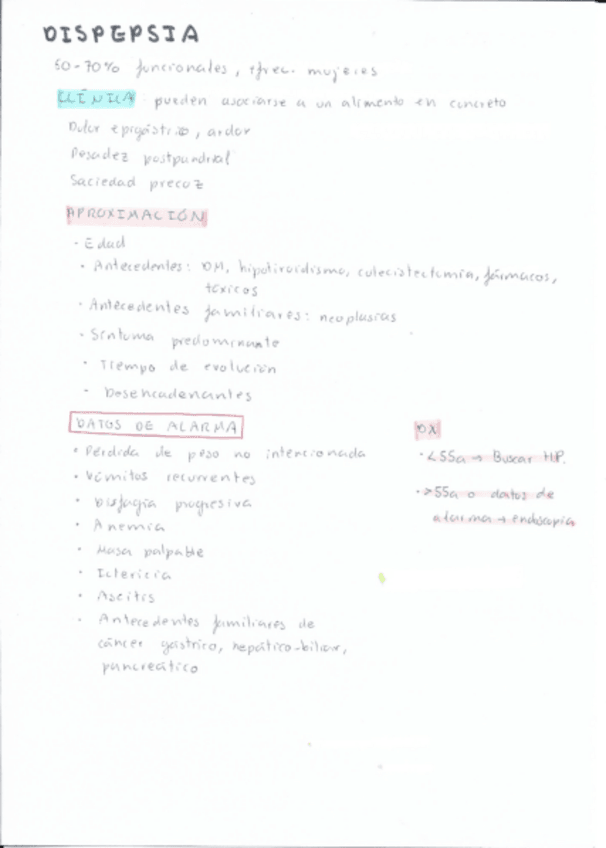 DISPEPSIA
50-70% funcionales, +frec. mujeres
CLÍNICA pueden asociarse a un alimento en concreto
Dolor epigástrico, ardor
Pesadez postpandrial
Saciedad precoz
APROXIMACIÓN
· Edad
· Antecedentes: DM, hipotiroidismo, colecistectomía, fármacos,
tóxicos
· Antecedentes familiares: neoplasias
· Síntoma predominante
· Tiempo de evolución
· Desencadenantes
DATOS DE ALARMA
· Pérdida de peso no intencionada
· Vómitos recurrentes
· Disfagia progresiva
· Anemia
· Masa palpable
· Ictericia
· Ascitis
· Antecedentes familiares de
cáncer gástrico, hepático-biliar,
pancreático
DX
· <55a → Buscar HP.
· >55a o datos de
alarma → endoscopia